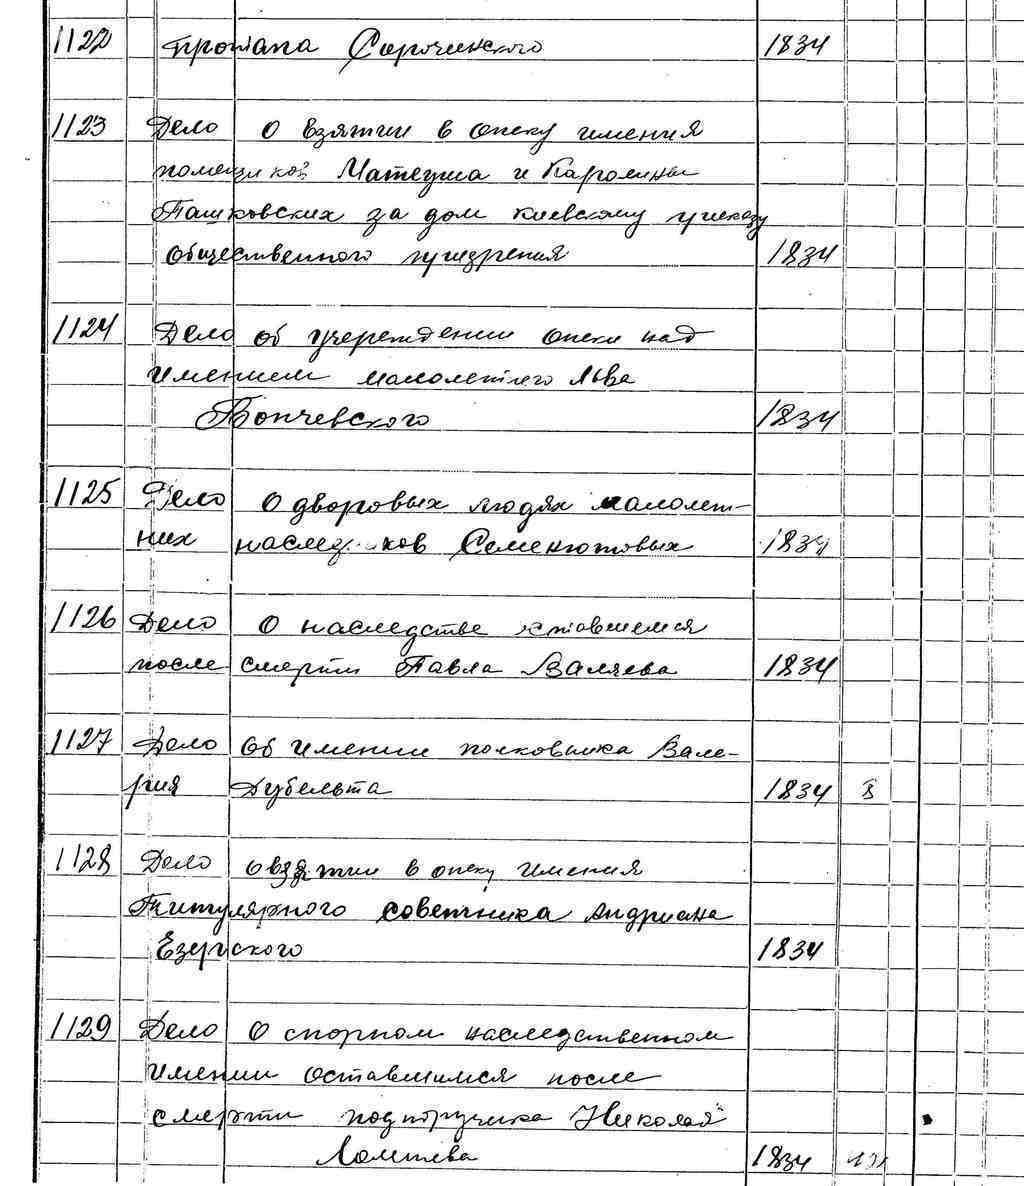 1122 Сорочинского 1834
1123 Дело о взятии в опеку имения
Матеуша и Каролины
Пашковских за дом киевскому приказу
общественного призрения 1834
1124 Дело об учереждении опеки над
имением малолетнего Льва
1834
1125 Дело о дворовых людях малолет-
них наследников Семенютовых 1834
1126 Дело о наследстве оставшемся
после смерти Павла Валяева 1834
1127 Дело об имении полковника Вале-
рия Дубельта 1834
1128 Дело о взятии в опеку имения
Титулярного советника Андриана
Езерского 1834
1129 Дело о спорном наследственном
имении оставшимся после
смерти подпоручика Николая
1834